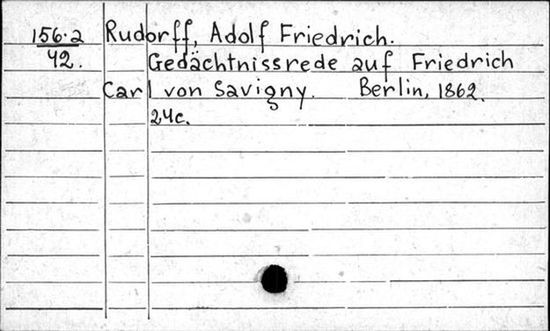 156.2 Rudorff, Adolf Friedrich.
42. Gedächtnissrede auf Friedrich
Carl von Savigny. Berlin, 1862.
24c.